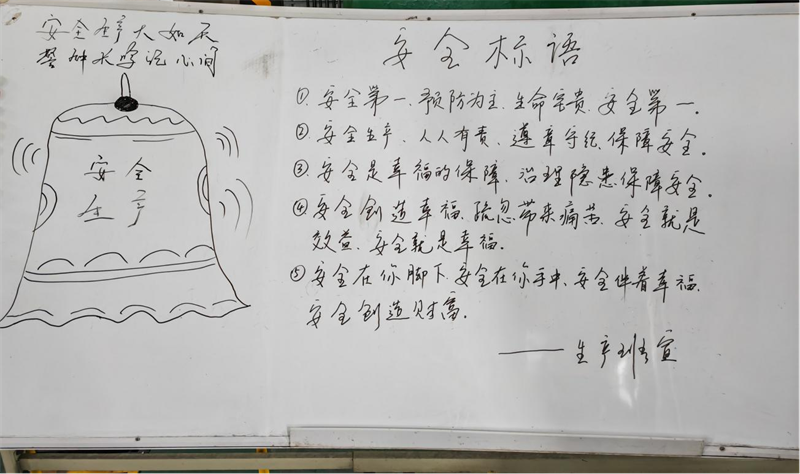 安全生产大如天
警钟长鸣记心间
安全
生产
安全标语
①、安全第一、预防为主、生命宝贵、安全第一.
②、安全生产、人人有责、遵章守纪、保障安全.
③、安全是幸福的保障、治理隐患保障安全.
④、安全创造幸福、疏忽带来痛苦、安全就是
效益、安全就是幸福.
⑤、安全在你脚下、安全在你手中、安全伴着幸福、
安全创造财富.
——生产班宣